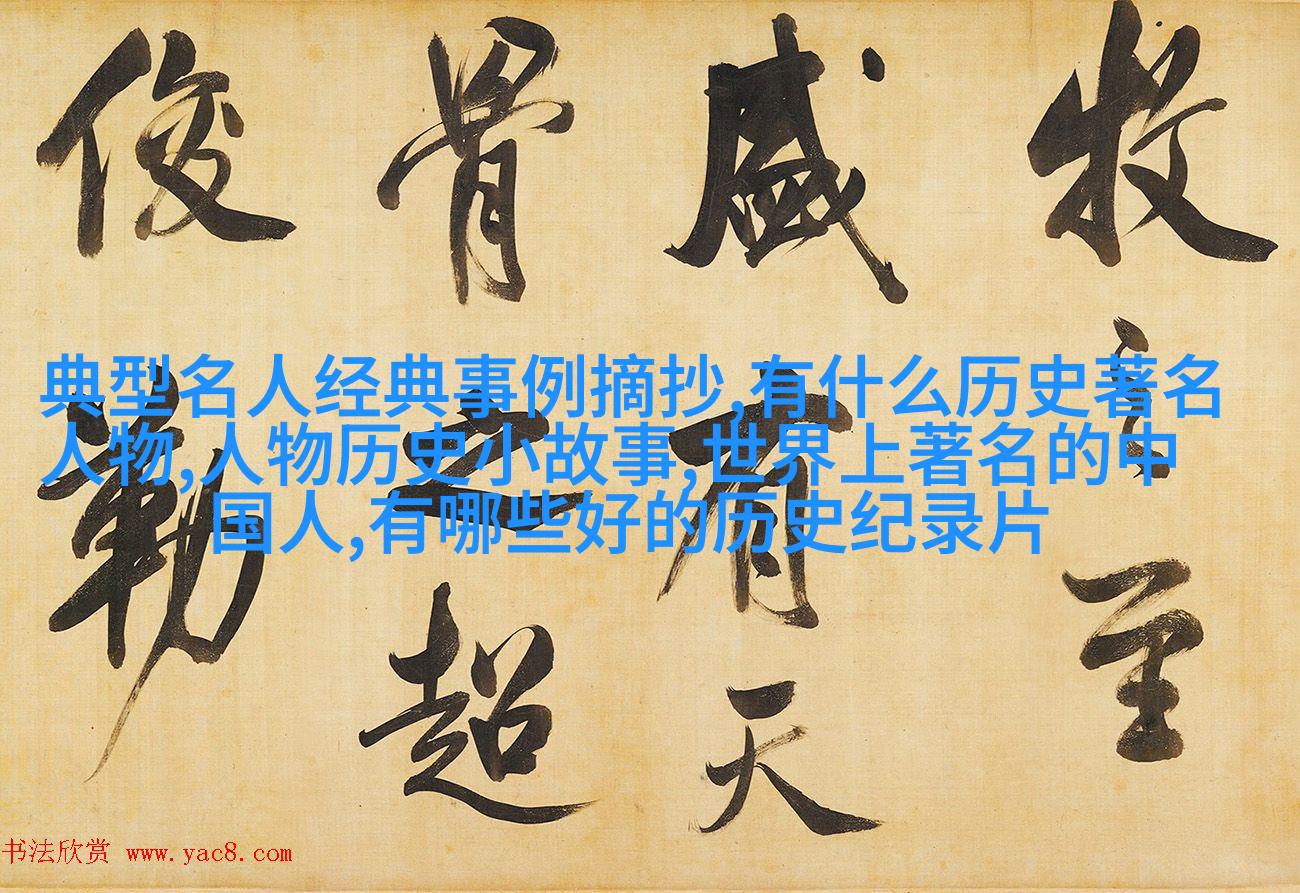 牧之至
盛有天
骨之超
俊勒
典型名人经典事例摘抄,有什么历史著名
人物,人物历史小故事,世界上著名的中
国人,有哪些好的历史纪录片
书法欣赏 www.yac8.com